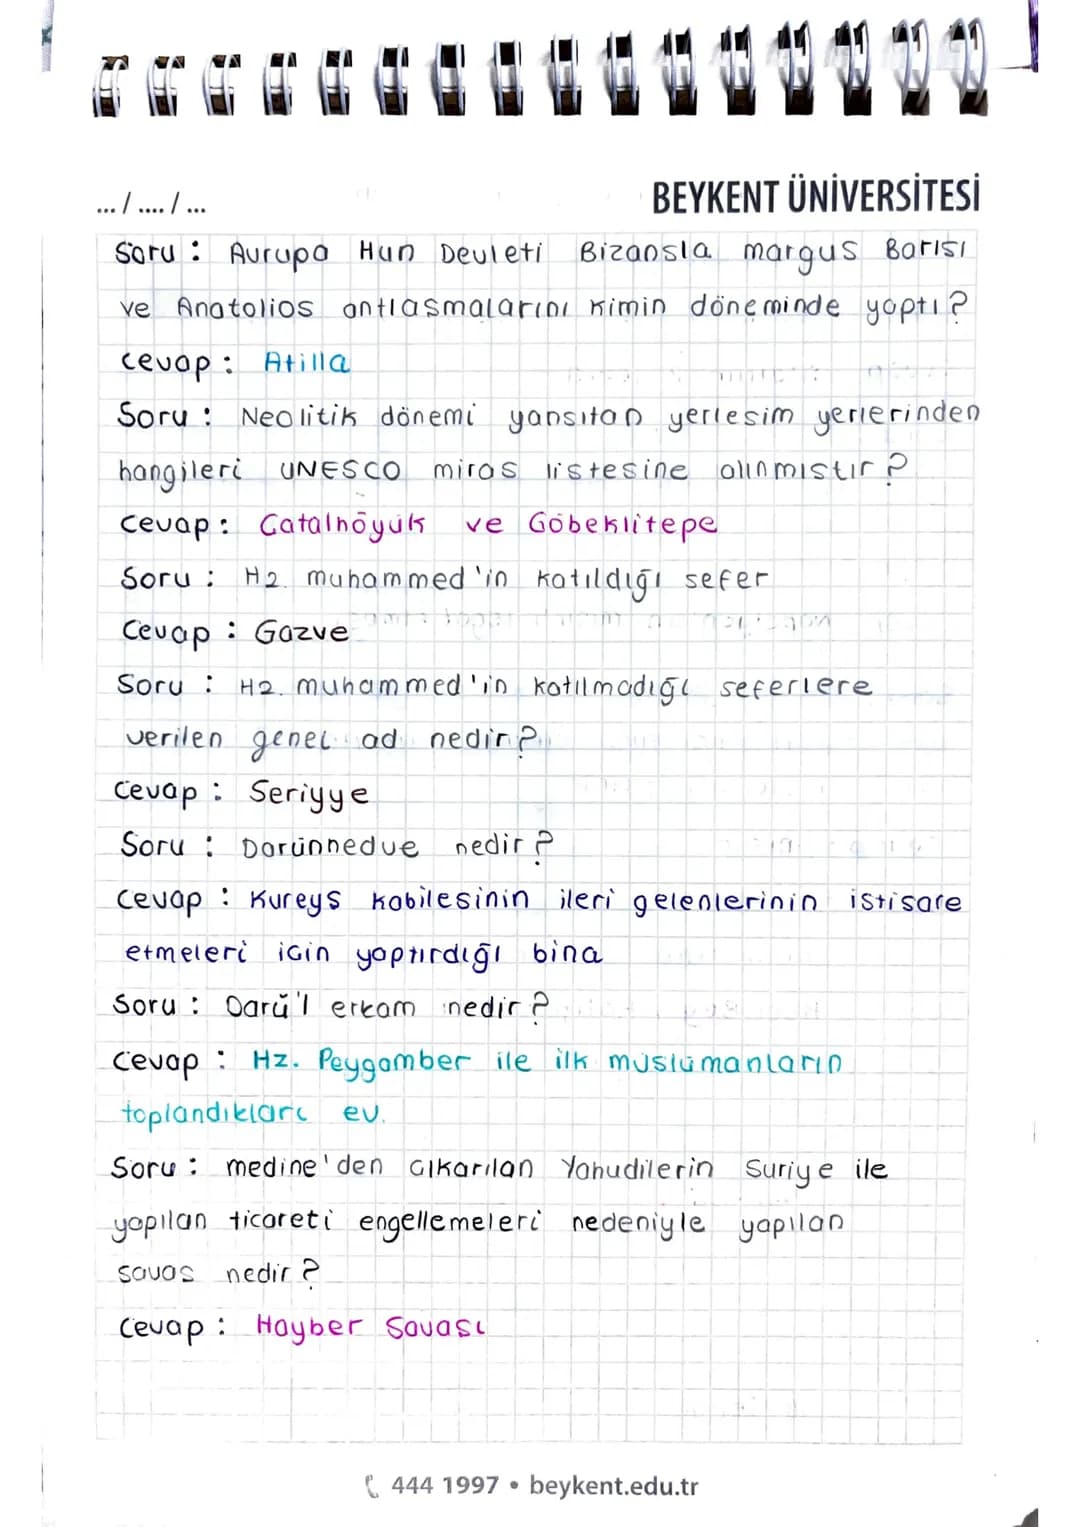 ... / .... / ...
BEYKENT ÜNİVERSİTESİ
Soru : Avrupa Hun Devleti Bizansla margus Barısı
ve Anatolios antlasmalarını kimin döneminde yaptı?
Cevap : Atilla
Soru : Neolitik dönemi yansıtan yerlesim yerlerinden
hangileri UNESCO miras listesine alınmıstır?
Cevap : Catalhöyük ve Göbeklitepe
Soru : Hz. muhammed'in katıldığı sefer
Cevap : Gazve
Soru : Hz. muhammed'in katılmadığı seferlere
verilen genel ad nedir?
Cevap : Seriyye
Soru : Darünnedve nedir?
Cevap : Kureys kabilesinin ileri gelenlerinin istisare
etmeleri icin yaptırdığı bina
Soru : Darü'l erkam nedir?
Cevap : Hz. Peygamber ile ilk müslümanların
toplandıkları ev.
Soru : medine'den cıkarılan Yahudilerin Suriye ile
yapılan ticareti engellemeleri nedeniyle yapılan
savas nedir?
Cevap : Hayber Savası
444 1997 • beykent.edu.tr